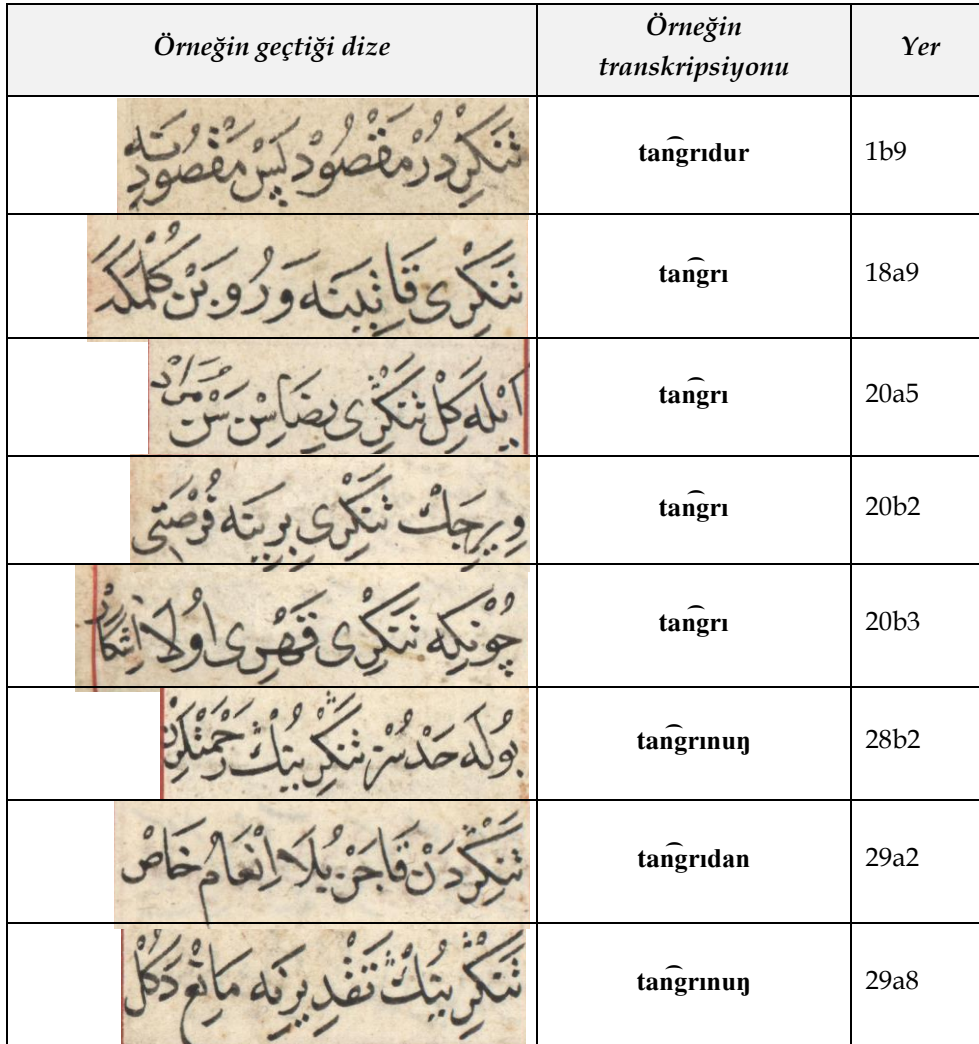 Örneğin geçtiği dize
Örneğin transkripsiyonu
Yer
تَنكْرِدُرْ مَقْصُوْدْ پَسْ
tan͡grıdur
1b9
تَنَكْرِى وَرُوبَنْ
tan͡grı
18a9
اَيْلَه كِلْ تَنَكْرِى رِضَاسِنْ سَنْ مُرَادْ
tan͡grı
20a5
وِيرِجَكْ تَنَكْرِى بِرِينَه فُرْصَتِى
tan͡grı
20b2
چُوْنكِه تَنَكْرِى قَهْرِى اوُلَا
tan͡grı
20b3
بُولَه حَدْسُزْ تَنَكْرِينُكْ رَحْمَتْلَرِنْ
tan͡grınuŋ
28b2
تَنَكْرِدَنْ قَاچَنْ بُلَا اِنْعَامُ خَاصْ
tan͡grıdan
29a2
تَنَكْرِينُكْ تَقْدِيرِنَه مَانِعْ دَكُلْ
tan͡grınuŋ
29a8